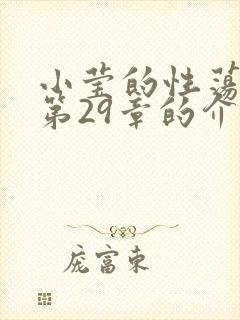 小莹的性荡
第29章的介
庞富东